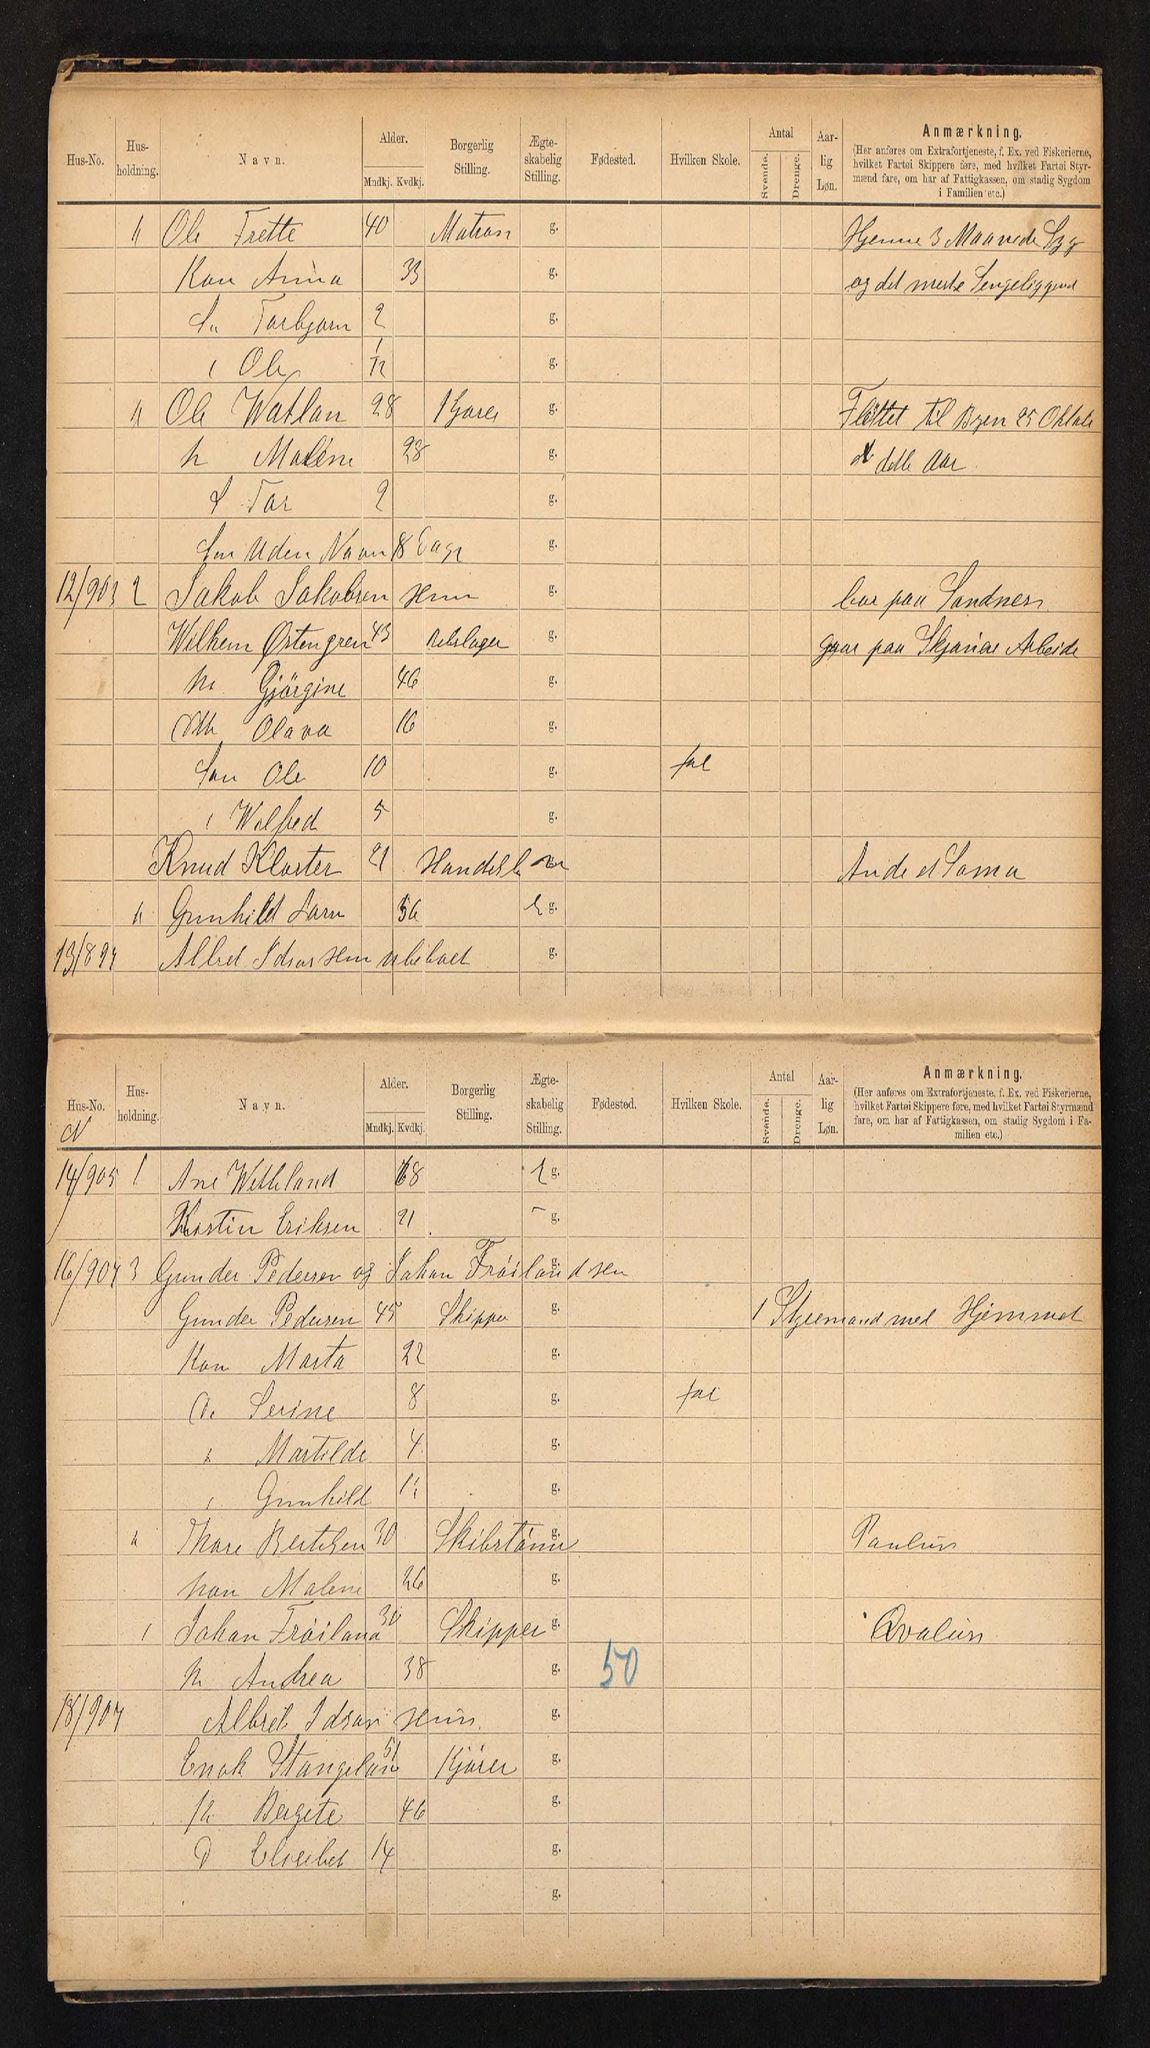 Hus-No. Hus-holdning. Navn. Alder. Mndkj. Kvdkj. Borgerlig Stilling. Ægte-skabelig Stilling. Fødested. Hvilken Skole. Antal Svende. Drenge. Aar-lig Løn. Anmærkning.
(Her anføres om Extrafortjeneste, f. Ex. ved Fiskerierne, hvilket Fartøi Skippere føre, med hvilket Fartøi Styrmænd fare, om har af Fattigkassen, om stadig Sygdom i Familien etc.)
" Ole Frette 40 Matros g. Hjemme 3 Maaneder Syg
Kon Anna 33 g. og det meste Sengeliggend
Sn Torbjorn 2 g.
" Ole g.
" Ole Watlan 28 Kjører g. Fløttet til Byen 25 Oktob
h Malene 28 g. dette Aar
S Tor 2 g.
Søn Uden Navn 8 Dage g.
12/903 2 Jakob Jakobsen g. bor paa Sandnes
Wilhem Østengren 43 Rebslager g. gaar paa Arbeide
h Gjörgine 46 g.
Dtt Olava 16 g.
Søn Ole 10 g. fol
" Wilfred 5 g.
Knud Kloster 21 Handels g.
" Gunhild 56 E g.
13/897 Albret Idsøe g.
Hus-No. Hus-holdning. Navn. Alder. Mndkj. Kvdkj. Borgerlig Stilling. Ægte-skabelig Stilling. Fødested. Hvilken Skole. Antal Svende. Drenge. Aar-lig Løn. Anmærkning.
(Her anføres om Extrafortjeneste, f. Ex. ved Fiskerierne, hvilket Fartøi Skippere føre, med hvilket Fartøi Styrmænd fare, om har af Fattigkassen, om stadig Sygdom i Familien etc.)
14/905 1 Ane 68 E g.
Kristin Eriksen 21 – g.
16/907 3 Gunder Pedersen og Johan Fröilandsen g.
Gunder Pedersen 45 Skipper g. 1 Styremand med Hjemmet
Kon Marta 22 g.
D. Serine 8 g. fol
" Martilde 4 g.
" Gunhild g.
" Thore Bertelsen 30 Skibstömr g. Paulus
kon Malene 26 g.
1 Johan Fröiland 30 Skipper g.
h Andrea 38 g. 50
18/907 Albret Idsøe g.
Enok Stangelan 51 Kjører g.
h Bergete 46 g.
D Elisebet 14 g.
g.